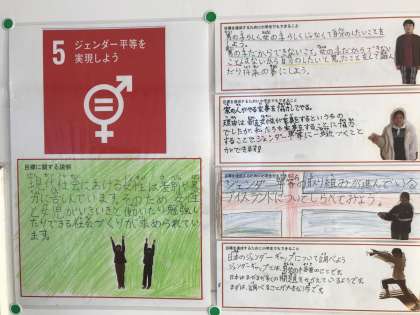 5 ジェンダー平等を
実現しよう
目標に関する説明
現代社会における女性は差別や暴
力に苦しんでいます。そのため、女性
と男性がいきいきと働いたり勉強し
たりできる社会づくりが求められてい
ます。
目標を達成するために小学生でもできること
男の子らしく女の子らしくじゃなくて自分のしたいことを
しよう。
男の子だからできないこと、女の子だからできない
ことはないから自分のしたいし
だり将来の事にしよう。
目標を達成するために小学生でもできること
家の人がやる家事を
理由は
でしたが、私たちも家事をすることに
することでジェンダー平等に一歩近づくこと
ができます!
目標を達成するために小学生でもできること
ジェンダー平等の取り組みが進んでいる
アイスランドについてしらべてみよう。
目標を達成するために小学生でもできること
日本のジェンダーギャップについて調べよう
ジェンダーギャップとは、男女の
日本はまだまだ多くの問題をかかえているようです。
まずは、調べることが大切です。